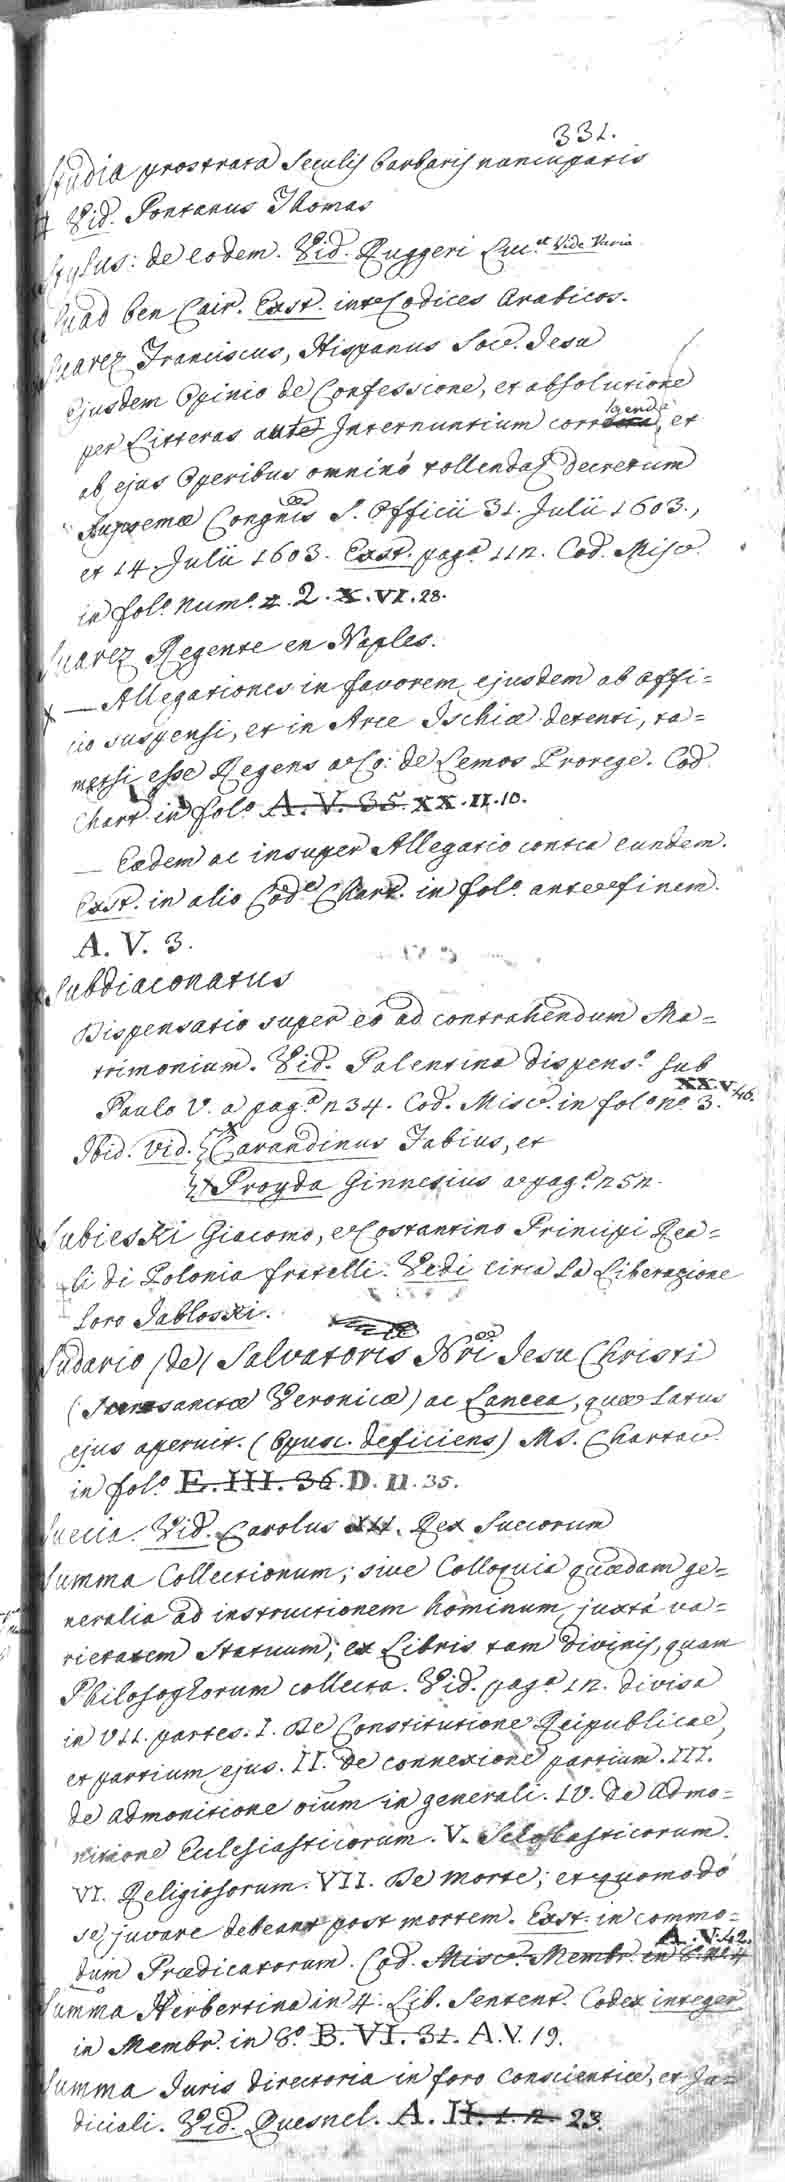 331.
Studia prostrata Seculis barbaris nuncupatis
Vid. Pontanus Thomas
Stylus: de eodem. Vid. Ruggeri Luc. et Vide Varia
Suad ben Cair. Exst. inter Codices Arabicos.
Suarez Franciscus, Hispanus Soc. Jesu
Ejusdem Opinio de Confessione, et absolutione
per Litteras aut Internuntium corrigenda, et
ab ejus Operibus omninò tollenda; decretum
Supremæ Congnis S. Officii 31. Julii 1603.,
et 14. Julii 1603. Exst. pag.a 112. Cod. Misc.
in fol.o Num.o 2. X.VI.28.
Suarez Regente en Naples.
— Allegationes in favorem ejusdem ab offi=
cio suspensi, et in Arce Ischiæ detenti, ta=
metsi esse Regens a Co: de Lemos Prorege. Cod.
Chart. in fol.o A. V. 35. XX.II.10.
— Eædem ac insuper Allegatio contra eundem.
Exst. in alio Cod.e Chart. in fol.o ante finem.
A. V. 3.
Subdiaconatus
Dispensatio super eo ad contrahendum Ma=
trimonium. Vid. Palentina dispens.o sub
Paulo V. a pag.a 234. Cod. Misc. in fol.o n.o 3. XX.V.46.
Ibid. vid. Carandinus Fabius, et
Proyda Ginnesius a pag.a 252.
Subieski Giacomo, e Costantino Principi Rea=
li di Polonia fratelli. Vedi circa la Liberazione
loro Jabloski.
Sudario (de) Salvatoris Nri Jesu Christi
(sanctæ Veronicæ) ac Lancea, quæ latus
ejus aperuit. (Opusc. deficiens) MS. Chartac.
in fol.o E. III. 36. D. II. 35.
Suecia. Vid. Carolus XII. Rex Suecorum
Summa Collectionum; sive Colloquia quædam ge=
neralia ad instructionem hominum, juxtà va=
rietatem statuum; ex Libris tam divinis, quam
Philosophorum collecta. Vid. pag.a 12. divisa
in VII. partes. I. De Constitutione Reipublicae,
et partium ejus. II. de connexione partium. III.
de admonitione oium in generali. IV. de admo=
nitione Ecclesiasticorum. V. Scholasticorum.
VI. Religiosorum. VII. De morte; et quomodò
se juvare debeant post mortem. Exst. in commo=
dum Prædicatorum. Cod. Misc. Membr. in 8. A.V.42.
Summa Herbertina in 4. Lib. Sentent. Codex integer
in Membr. in 8.o B. VI. 31. A.V. 19.
Summa Juris directoria in foro conscientiæ, et Ju=
diciali. Vid. Quesnel. A. II. 1. 2. 23.